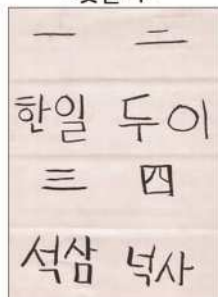 一 二
한일 두이
三 四
석삼 넉사